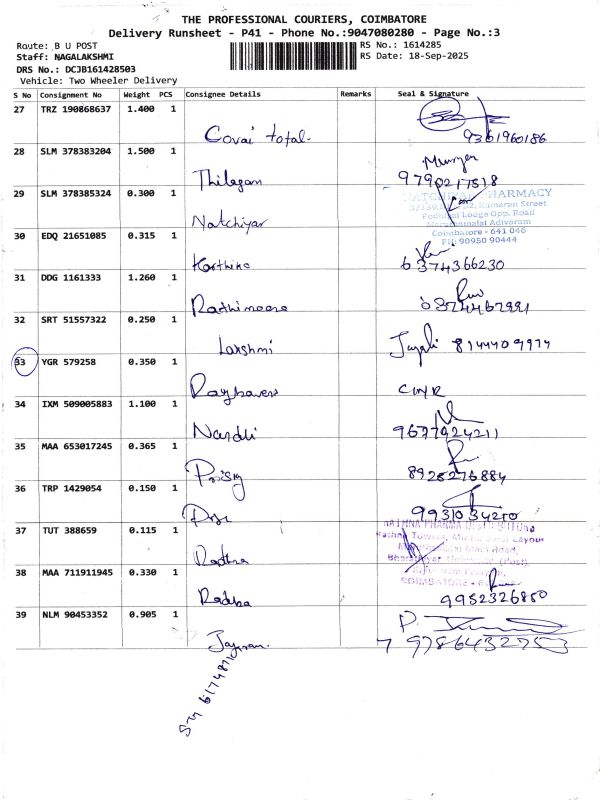 THE PROFESSIONAL COURIERS, COIMBATORE
Delivery Runsheet - P41 - Phone No.:9047080280 - Page No.:3
Route: B U POST
RS No.: 1614285
Staff: NAGALAKSHMI
RS Date: 18-Sep-2025
DRS No.: DCJB161428503
Vehicle: Two Wheeler Delivery
S No Consignment No Weight PCS Consignee Details Remarks Seal & Signature
27 TRZ 190868637 1.400 1
Covai total.
9361960186
28 SLM 378383204 1.500 1
Thilagan
9790217518
29 SLM 378385324 0.300 1
PHARMACY
Kumaran Street
Lodge Opp. Road
Adivaram
Coimbatore - 641 046
PH: 90950 90444
Natchiyar
30 EDQ 21651085 0.315 1
Karthika
6374366230
31 DDG 1161333 1.260 1
Rathimeena
32 SRT 51557322 0.250 1
Lakshmi
8144409974
33 YGR 579258 0.350 1
34 IXM 509005883 1.100 1
Nandhi
9677924211
35 MAA 653017245 0.365 1
8925276884
36 TRP 1429054 0.150 1
9931034210
37 TUT 388659 0.115 1
RATHNA PHARMA
Main Road,
COIMBATORE
Radha
38 MAA 711911945 0.330 1
Radha
9952326850
39 NLM 90453352 0.905 1
P.
9786432753